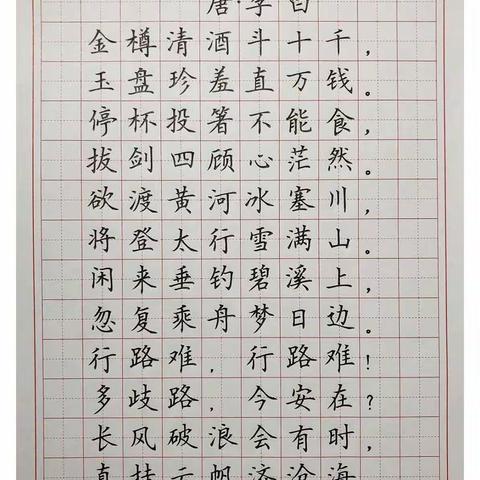 唐·李白
金樽清酒斗十千，
玉盘珍羞直万钱。
停杯投箸不能食，
拔剑四顾心茫然。
欲渡黄河冰塞川，
将登太行雪满山。
闲来垂钓碧溪上，
忽复乘舟梦日边。
行路难，行路难！
多歧路，今安在？
长风破浪会有时，
直挂云帆济沧海